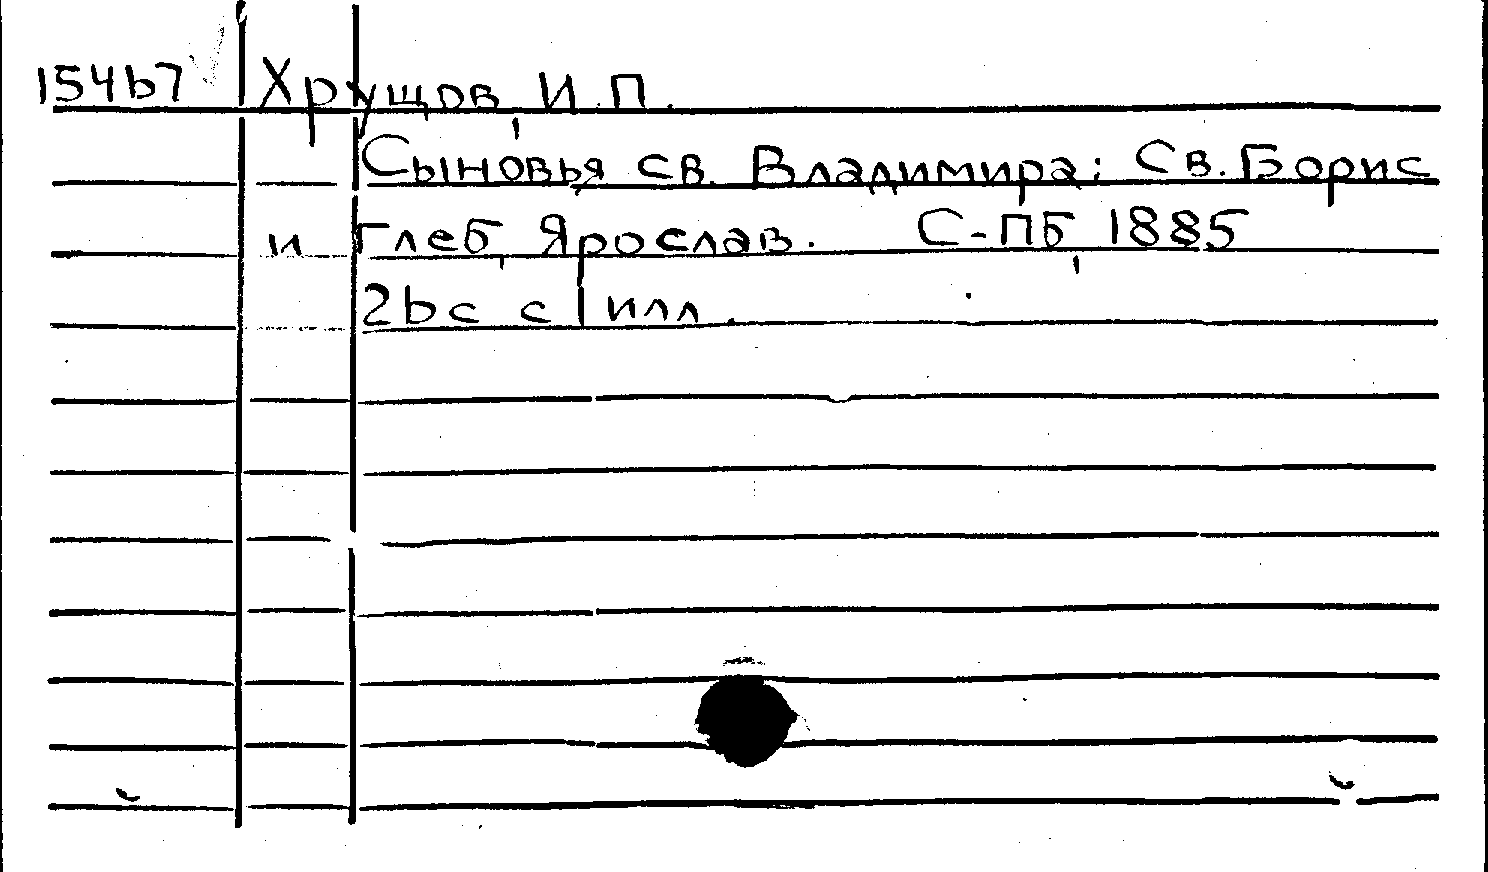 15467 Хрущов, И.П.
Сыновья св. Владимира: Св. Борис
и Глеб, Ярослав. С-ПБ, 1885
26с с илл.